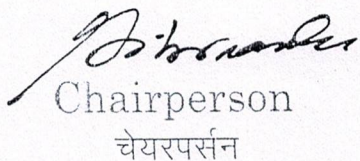 Chairperson
चेयरपर्सन